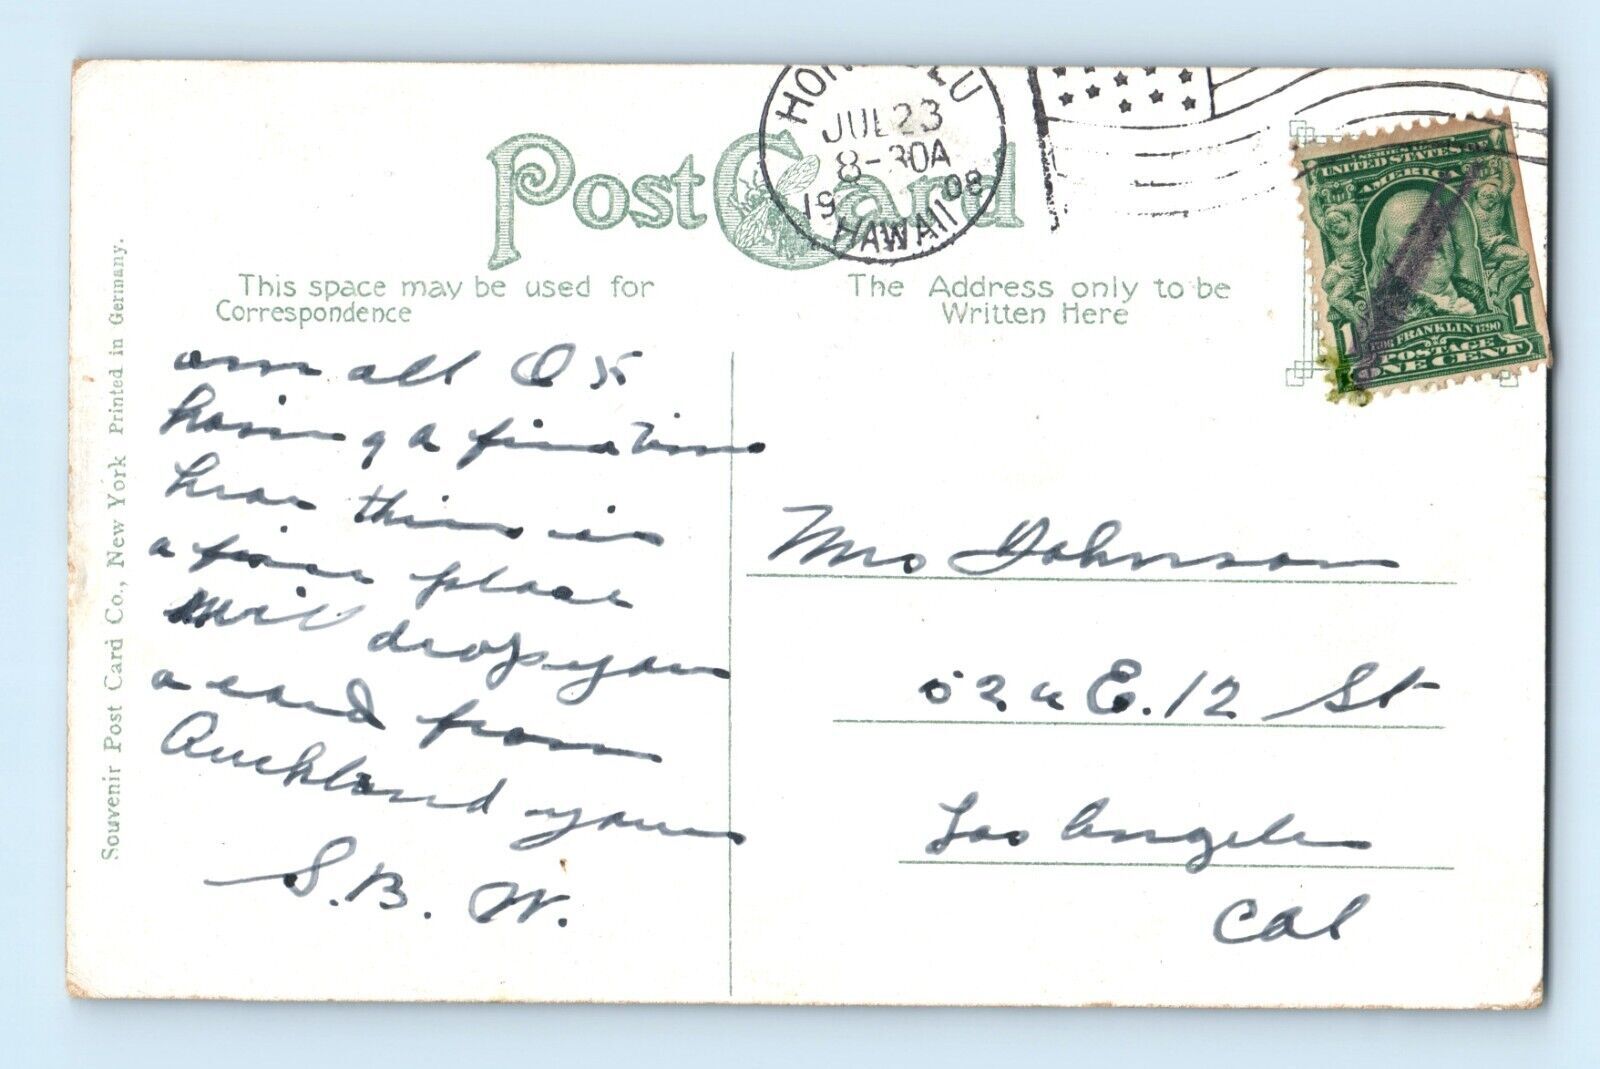 HONOLULU
JUL 23
8-30A
1908
HAWAII
Post Card
This space may be used for
Correspondence
The Address only to be
Written Here
UNITED STATES OF
AMERICA
1706 FRANKLIN 1790
1 POSTAGE 1
ONE CENT
Souvenir Post Card Co., New York Printed in Germany.
am all O K
having a fine time
hear this is
a fine place
will drop you
a card from
Auckland yours
S. B. W.
Mrs Johnson
E. 12 St
Los Angeles
Cal